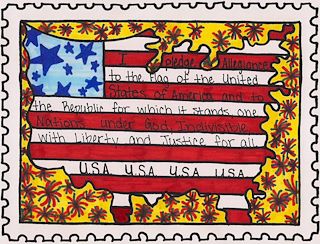 I pledge Allegiance
to the flag of the United
States of America and to
the Republic for which it stands, one
Nations under God, Indivisible,
with Liberty and Justice for all.
USA USA USA USA